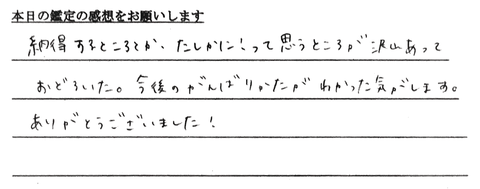 本日の鑑定の感想をお願いします
納得するところとか、たしかに!って思うところが沢山あって
おどろいた。今後のがんばりかたが わかった気がします。
ありがとうございました!